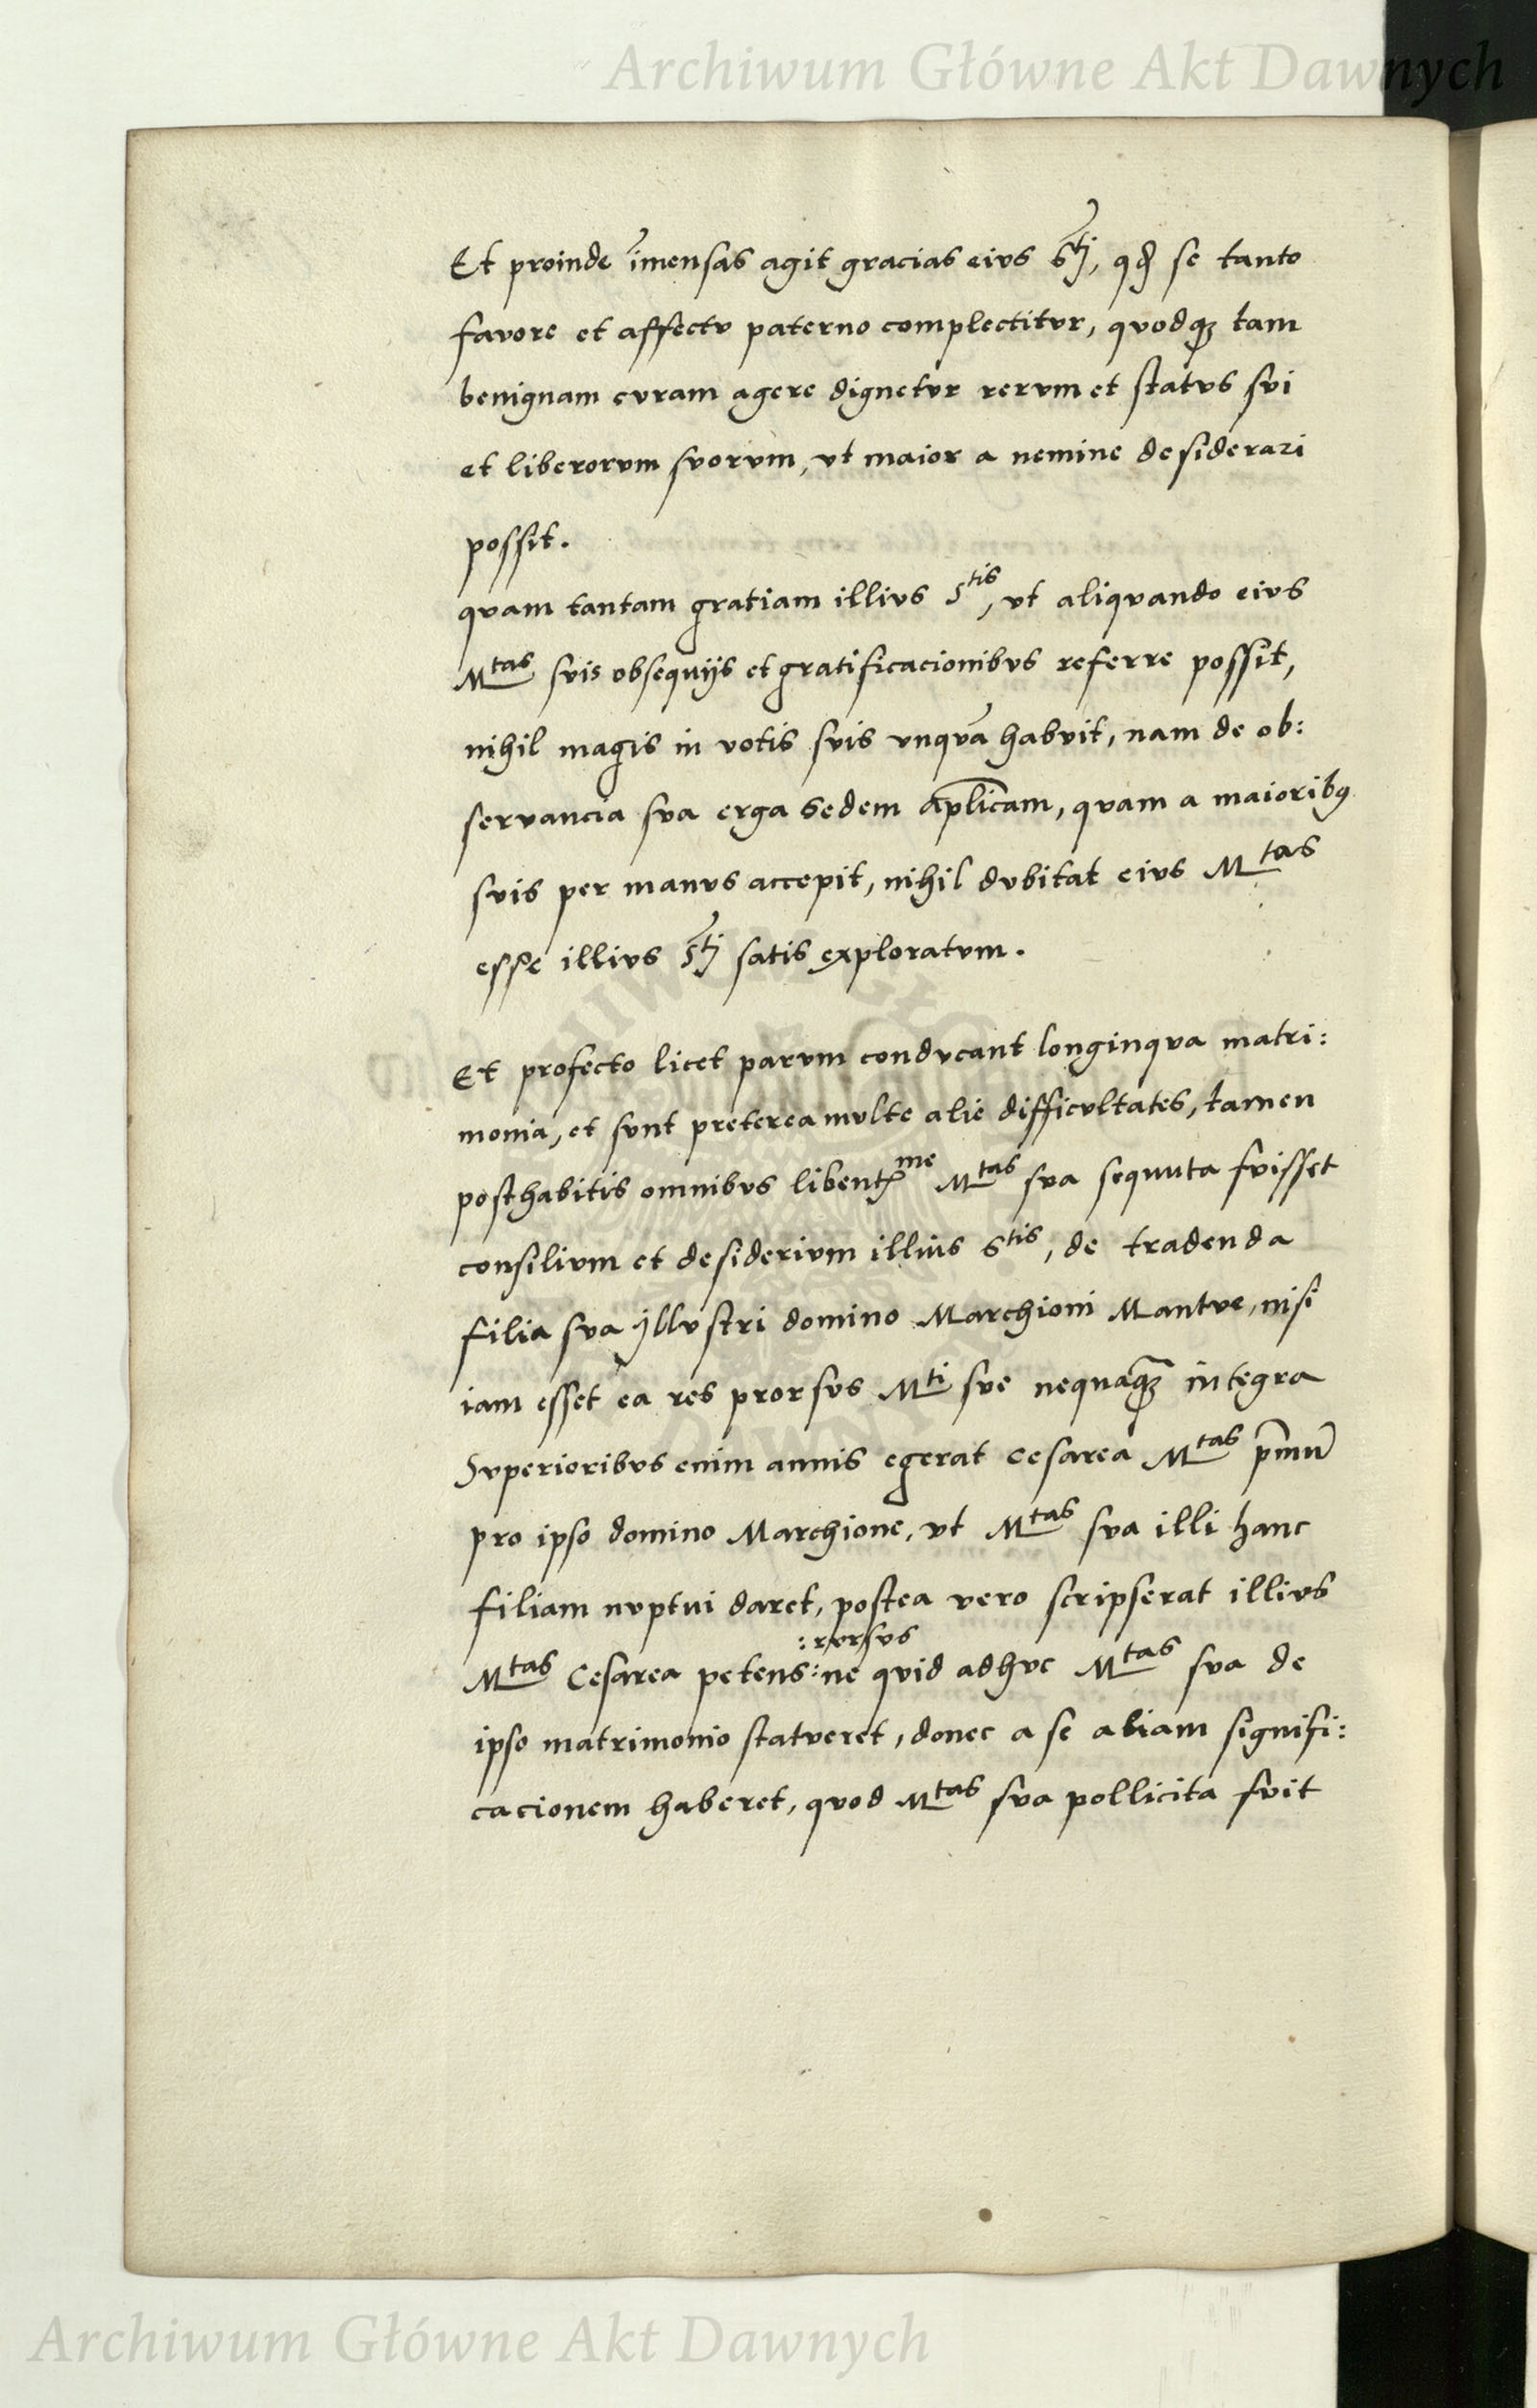 Archiwum Główne Akt Dawnych
Et proinde īmensas agit gracias eivs Stj, qđ se tanto
favore et affectv paterno complectitvr, qvodqꝫ tam
benignam cvram agere dignetvr rervm et statvs svi
et liberorvm svorvm, vt maior a nemine desiderari
possit.
qvam tantam gratiam illivs Stis, vt aliqvando eivs
Mtas svis obseqvijs et gratificacionibvs referre possit,
nihil magis in votis svis vnqvā habvit, nam de ob:
servancia sva erga Sedem aplicam, qvam a maioribꝯ
svis per manvs accepit, nihil dvbitat eivs Mtas
esse illivs Stj satis exploratvm.
Et profecto licet parvm condvcant longinqva matri:
monia, et svnt preterea mvlte alie difficvltates, tamen
posthabitis omnibvs libentꝭme Mtas sva sequuta fvisset
consilivm et desiderivm illius Stis, de tradenda
filia sva jllvstri domino Marchioni Mantve, nisi
iam esset ea res prorsvs Mti sve neqvaqꝫ integra
Svperioribvs enim annis egerat Cesarea Mtas pͫmū
pro ipso domino Marchione, vt Mtas sva illi hanc
filiam nvptui daret, postea vero scripserat illivs
:rvrsvs
Mtas Cesarea petens: ne qvid adhvc Mtas sva de
ipso matrimonio statveret, donec a se aliam signifi:
cacionem haberet, qvod Mtas sva pollicita fvit
Archiwum Główne Akt Dawnych